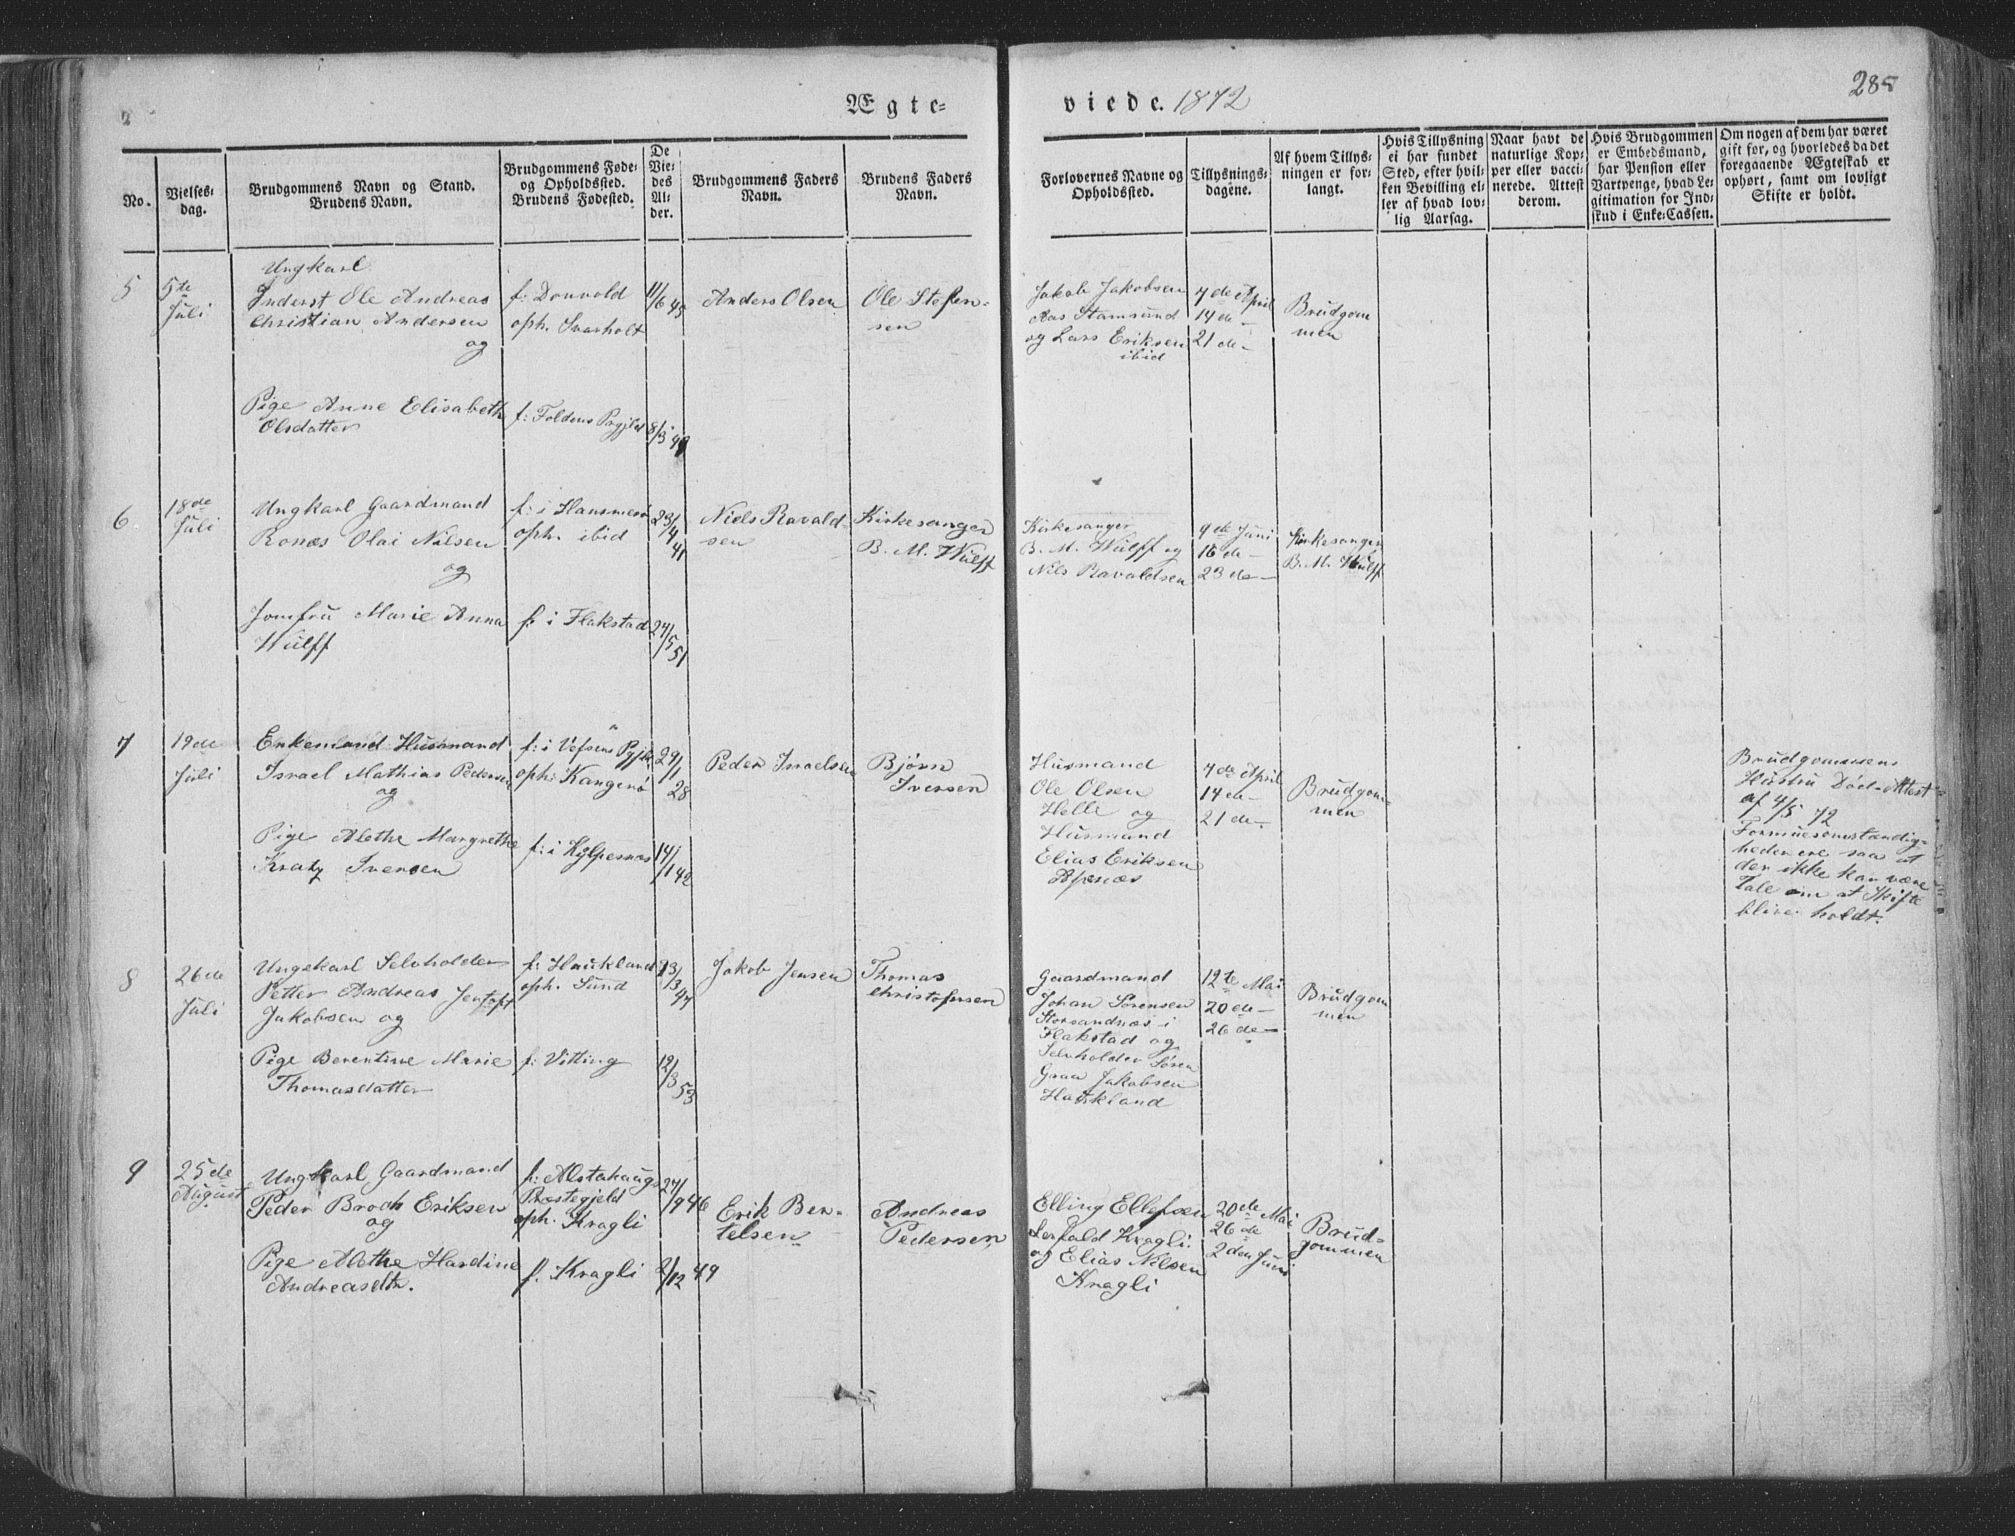 Ægte=
viede. 1872
285
No.
Vielses=
dag.
Brudgommens Navn og Stand.
Brudens Navn.
Brudgommens Føde=
og Opholdssted.
Brudens Fødested.
De
Vie=
des
Al=
der.
Brudgommens Faders
Navn.
Brudens Faders
Navn.
Forlovernes Navne og
Opholdssted.
Tillysnings=
dagene.
Af hvem Tillys=
ningen er for=
langt.
Hvis Tillysning
ei har fundet
Sted, efter hvil=
ken Bevilling el=
ler af hvad lov=
lig Aarsag.
Naar havt de
naturlige Kop=
per eller vacci=
nerede. Attest
derom.
Hvis Brudgommen
er Embedsmand,
har Pension eller
Vartpenge, hvad Le=
gitimation for Ind=
skud i Enke=Cassen.
Om nogen af dem har været
gift før, og hvorledes da det
foregaaende Ægteskab er
ophørt, samt om lovligt
Skifte er holdt.
5
5te
Juli
Ungkarl
Inderst Ole Andreas
Christian Andersen
og
Pige Anne Elisabeth
Olsdatter
f: Donvold
oph. Svarholt
f: Foldens Prgjld
11/6 45
8/3 49
Anders Olsen
Ole Stefen=
sen
Jakob Jakobsen
Aas Stamsund
og Lars Eriksen
ibid
7de April
14de —
21de —
Brudgom
men
6
18de
Juli
Ungkarl Gaardmand
Ronæs Olai Nilsen
og
Jomfru Marie Anna
Wulff
f: i Hansnesø
oph. ibid
f: i Flakstad
23/4 41
27/5 51
Niels Ravald
sen
Kirkesanger
B. M. Wulff
Kirkesanger
B. M. Wulff og
Nils Ravaldsen
9de Juni
16de —
23de —
Kirkesanger
B. M. Wulff
7
19de
Juli
Enkemand Husmand
Israel Mathias Pedersen
og
Pige Alethe Margrethe
Kratz Iversen
f: i Vefsens Pgjld
oph: Kangerø
f: i Kylpesnæs
29/1 28
14/1 42
Peder Israelsen
Bjørn
Iversen
Husmand
Ole Olsen
Helle og
Husmand
Elias Eriksen
Æpsnæs
7de April
14de —
21de —
Brudgom=
men
Brudgommens
Hustru Død=Attest
af 4/5 72
Formuesomstændig=
heder ere saa at
der ikke kan være
Tale om at Skifte
bliver holdt.
8
26de
Juli
Ungekarl Selvholder
Petter Andreas Jentoft
Jakobsen og
Pige Berentine Marie
Thomasdatter
f: Haukland
oph. Sund
f: Vitting
23/3 47
12/3 53
Jakob Jensen
Thomas
Christofersen
Gaardmand
Johan Sørensen
Storsandnæs i
Flakstad og
Selvholder Søren
Graa Jakobsen
Haukland
12te Mai
20de —
26de —
Brudgom
men
9
25de
August
Ungkarl Gaardmand
Peder Broch Eriksen
og
Pige Alethe Hardine
Andreasdtr.
f: Alstahaugs
Præstegjeld
oph. Kragli
f. Kragli
27/9 46
2/12 49
Erik Ben=
telsen
Andreas
Pedersen
Elling Ellefsen
Lerfald Kragli
og Elias Nilsen
Kragli
20de Mai
26de
2den Juni
Brud=
gommen